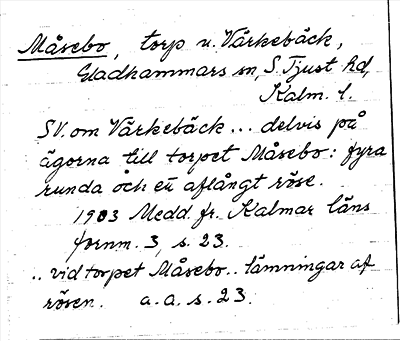 Måsebo, torp u. Vårkebäck,
Gladhammars sn, S. Tjust hd,
Kalm. l.
SV. om Vårkebäck ... delvis på
ägorna till torpet Måsebo: fyra
runda och en aflångt röse.
1903 Medd. fr. Kalmar läns
fornm. 3, s. 23.
.. vid torpet Måsebo .. lämningar af
rösen. a. a. s. 23.